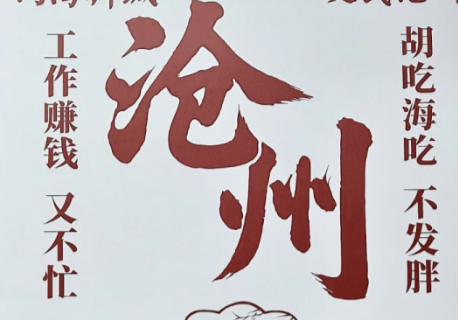 沧州
胡吃海吃 不发胖
工作赚钱 又不忙